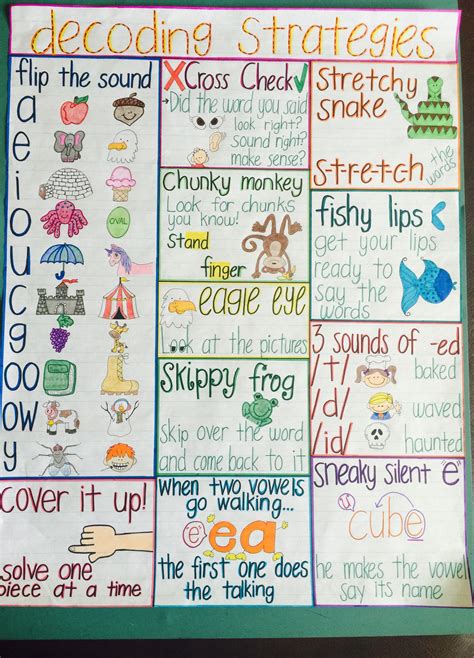 decoding Strategies
flip the sound
a
e
i
o
OVAL
u
c
g
oo
ow
y
X Cross Check ✓
→Did the word you said
look right?
sound right?
make sense?
Chunky monkey
Look for chunks
you know!
stand
finger
eagle eye
Look at the pictures
Skippy frog
Skip over the word
and come back to it
Stretchy
snake
S-t-r-e-t-c-h the
words
fishy lips
get your lips
ready to
say the
words
3 sounds of -ed
/t/ baked
/d/ waved
/id/ haunted
cover it up!
solve one
piece at a time
when two vowels
go walking...
ea
the first one does
the talking
sneaky silent "e"
cube
he makes the vowel
say its name